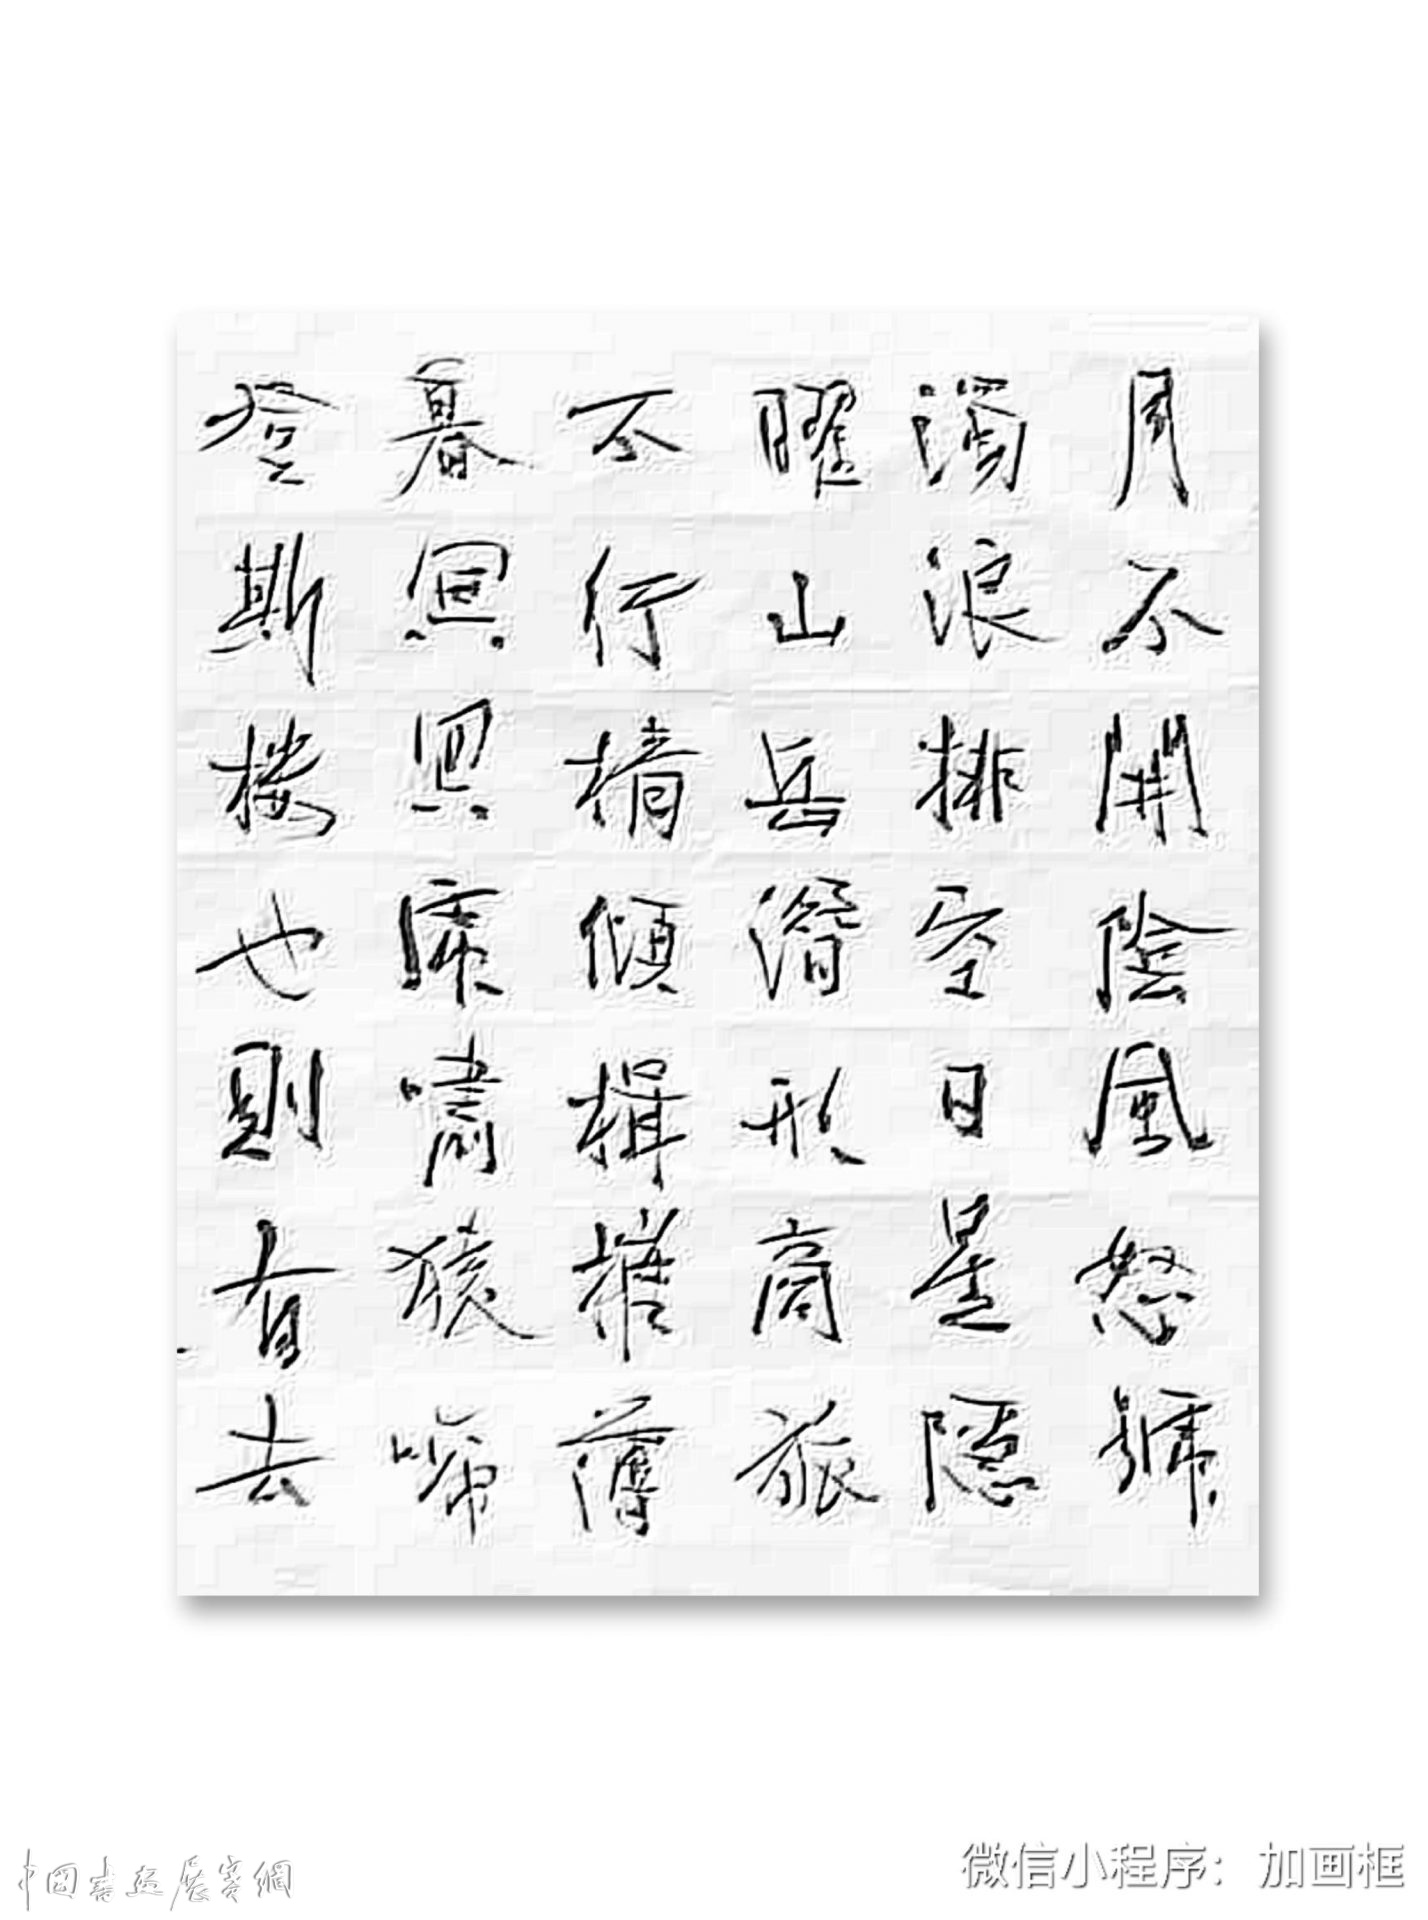 月不開陰風怒號
濁浪排空日星隱
曜山岳潛形商旅
不行檣傾楫摧薄
暮冥冥虎嘯猿啼
登斯楼也則有去
中國書画展賽網
微信小程序：加画框